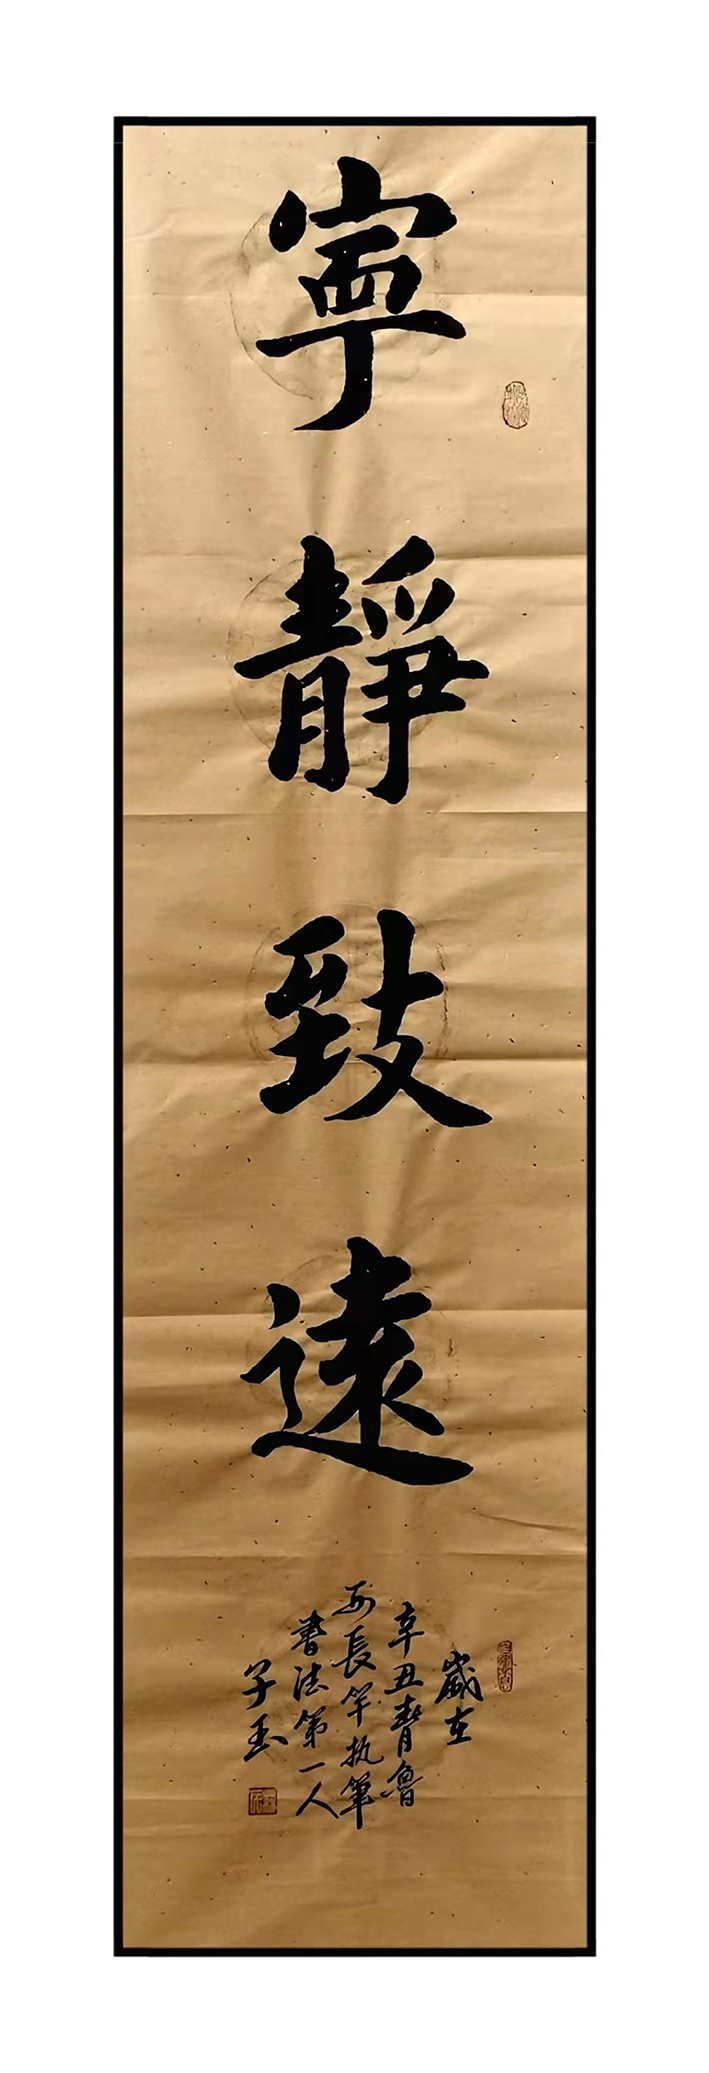 寧靜致遠
歲在
辛丑魯
長竿执筆
書法第一人
子玉